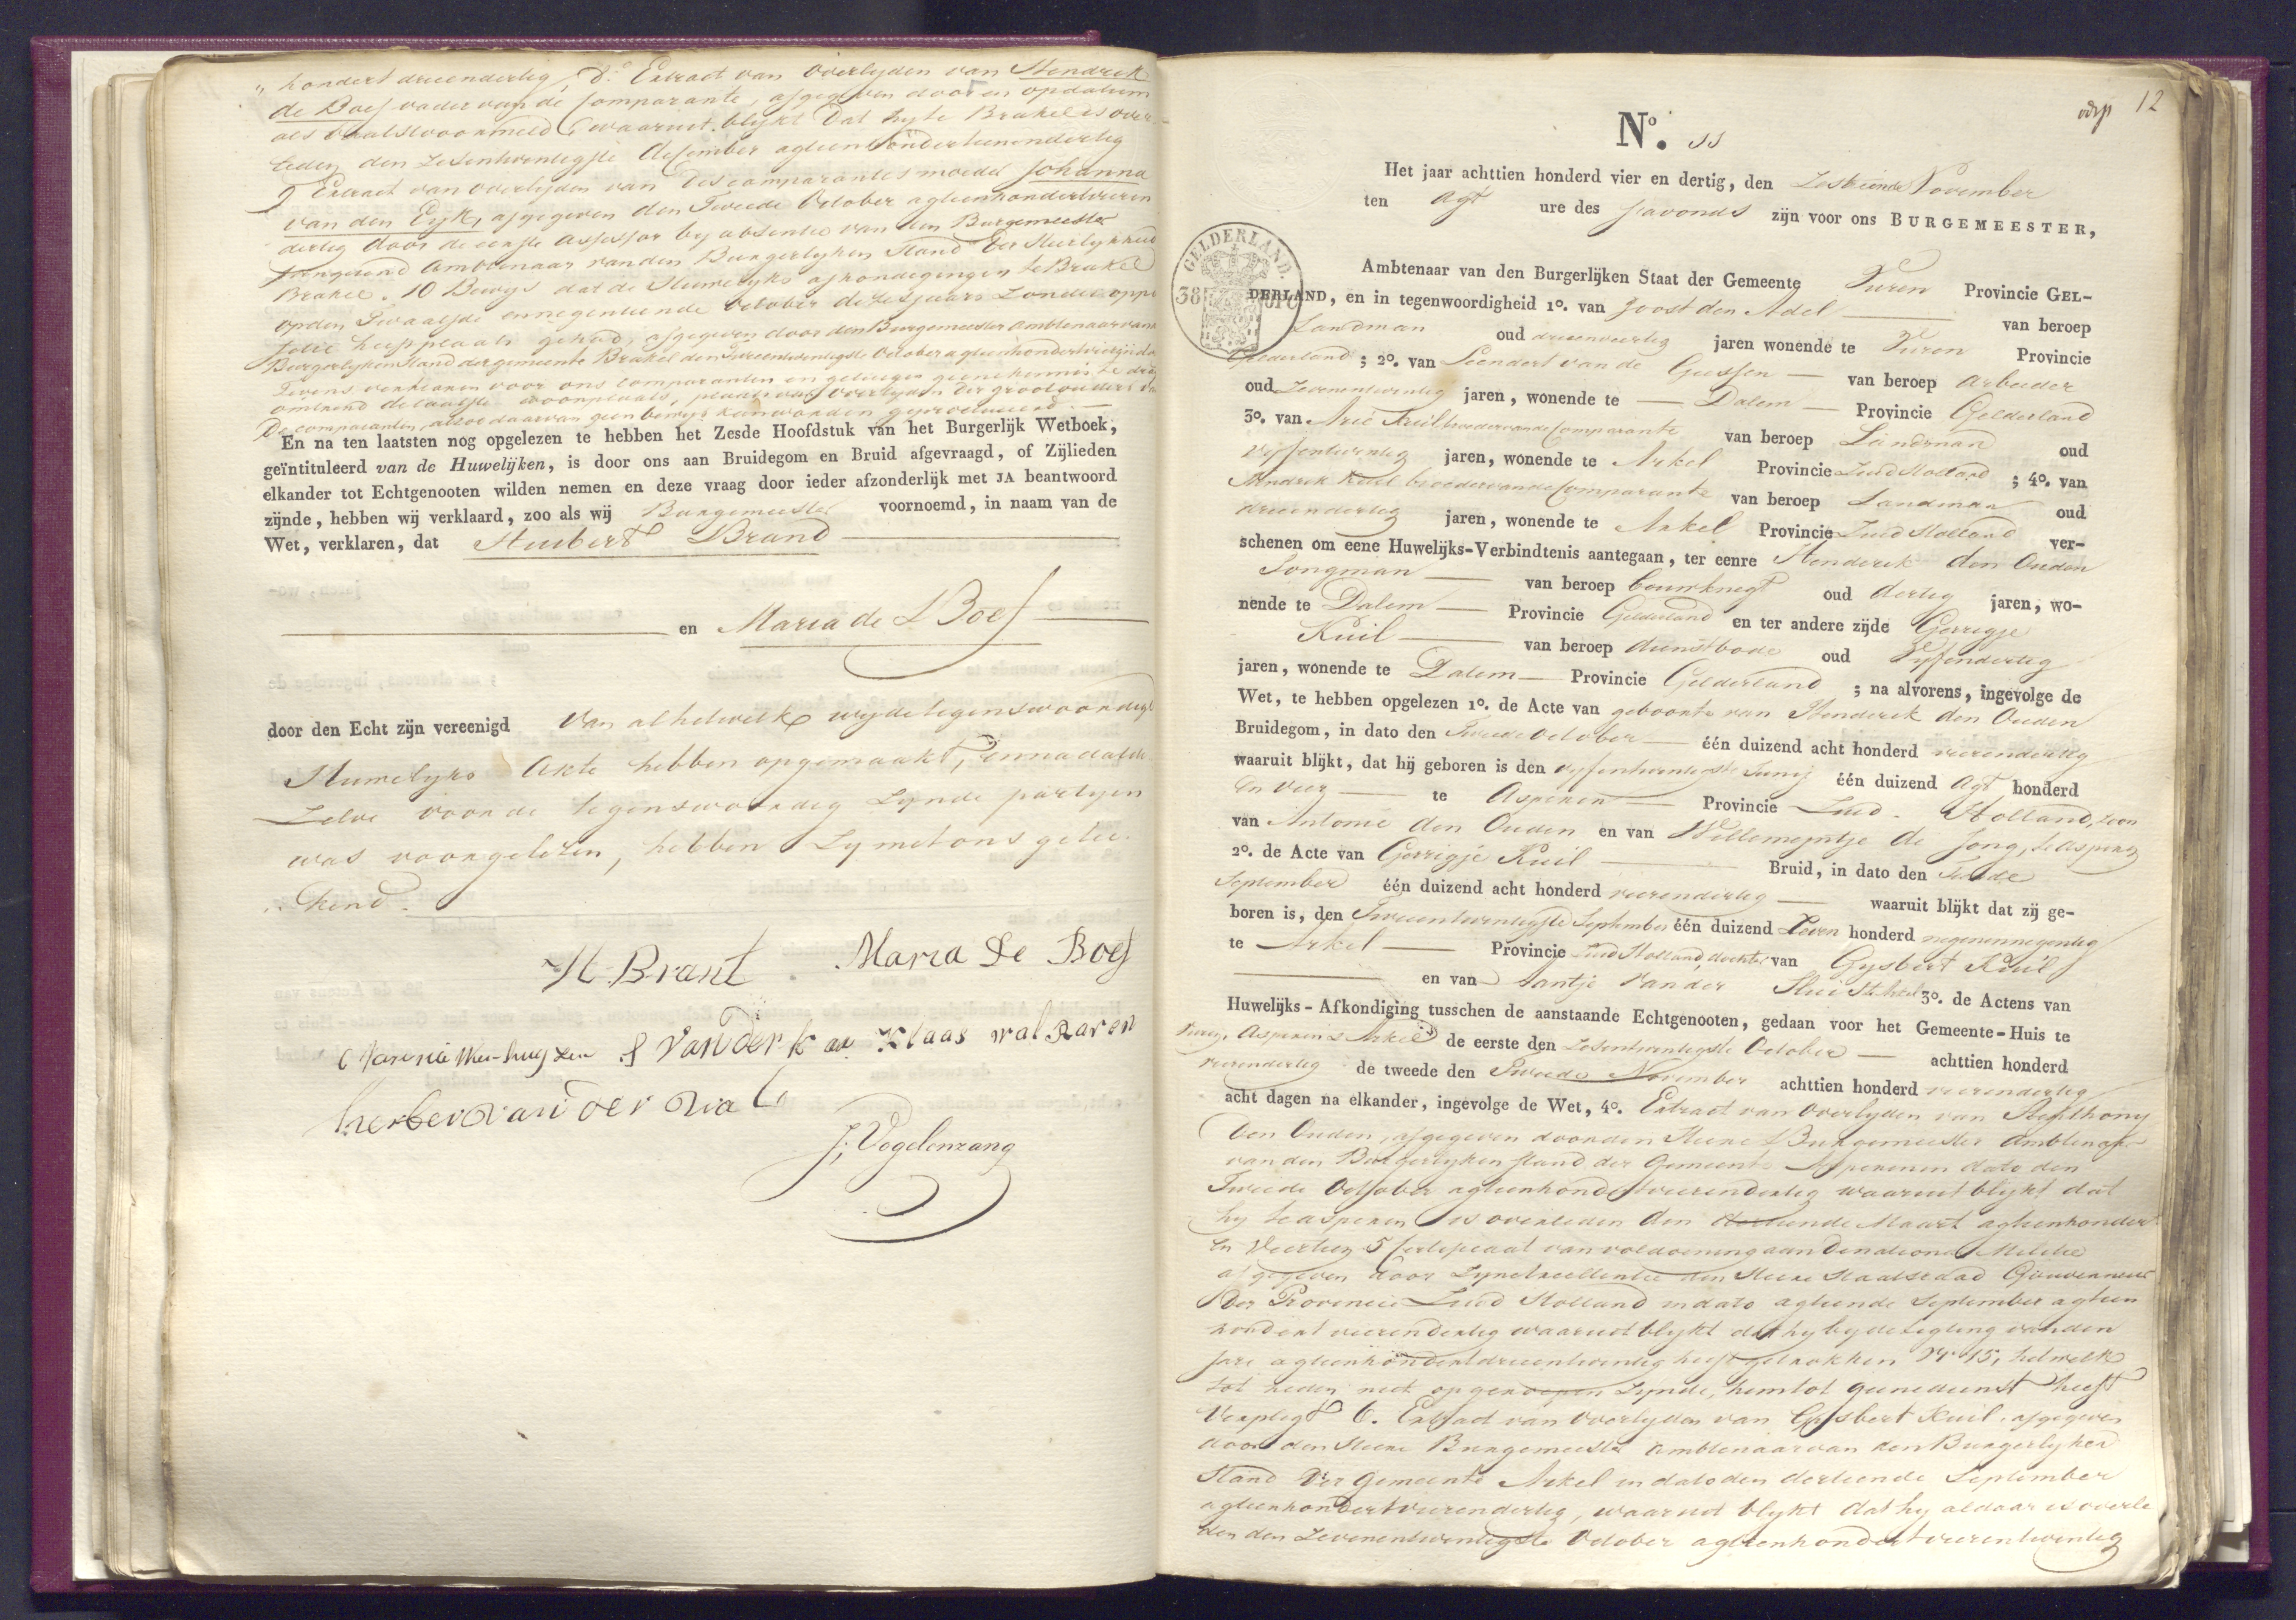 hondert drieendertig, 8e Extract van Overlyden van Hendrik
de Boef vader van de Comparante, afgegeven door en op datum
als Voorstvoormeld, waaruit blijkt Dat hy te Brakel is over
leden den Zesentwintigste December agtienhondert eenendertig
9 Extract van overlyden van des comparantes moeder Johanna
van den Eyk, afgegeven den Tweede October agtienhondert vieren
dertig door de eerste Assessor by absentie van den Burgemeester
fungerend Ambtenaar van den Burgerlyken Stand der Heerlykheid
Brakel. 10 Bewys dat de Huwelyks afkondigingen te Brakel
op den Twaalfde en negentiende October dezes jaars Zonder oppo
sitie heeft plaats gehad, afgegeven door den Burgemeester Ambtenaar van
Burgerlyken Stand der gemeente Brakel den Tweentwintigste October agtienhondert vierendertig
Tevens verklaren voor ons comparanten en getuigen geene kennis te dragen
omtrend de laatste woonplaats, plaats van overlyden der grootouders van
De comparanten, alzoo daarvan geen bewys kan worden geproduceerd.
En na ten laatsten nog opgelezen te hebben het Zesde Hoofdstuk van het Burgerlijk Wetboek,
geïntituleerd van de Huwelijken, is door ons aan Bruidegom en Bruid afgevraagd, of Zijlieden
elkander tot Echtgenooten wilden nemen en deze vraag door ieder afzonderlijk met JA beantwoord
zijnde, hebben wij verklaard, zoo als wij Burgemeester voornoemd, in naam van de
Wet, verklaren, dat Huibert Brand
en Maria de Boef
door den Echt zijn vereenigd Van al hetwelk wy de tegenswoordige
Huwelyks Akte hebben opgemaakt, en na dat de
Zelve voor de tegenswoordig zynde partyen
was voorgelezen, hebben Zy met ons getee
kend.
H Brant Maria De Boef
van der k Klaas walraven
herber van der wal
J. Vogelenzang
12
No. 11
Het jaar achttien honderd vier en dertig, den Zestiende November
ten Agt ure des s'avonds zijn voor ons BURGEMEESTER,
GELDERLAND.
Ambtenaar van den Burgerlijken Staat der Gemeente Vuren Provincie GEL-
DERLAND, en in tegenwoordigheid 1o. van Joost den Adel van beroep
Landman oud drieenveertig jaren wonende te Vuren Provincie
Gelderland; 2o. van Leendert van de Giessen van beroep Arbeider
oud Zevenentwintig jaren, wonende te Dalem Provincie Gelderland
3o. van Arie Kuil broeder van de Comparante van beroep Landman oud
vyfentwintig jaren, wonende te Arkel Provincie Zuid Holland; 4o. van
Hendrik Kuil broeder van de Comparante van beroep Landman oud
drieendertig jaren, wonende te Arkel Provincie Zuid Holland ver-
schenen om eene Huwelijks-Verbindtenis aantegaan, ter eenre Henderik den Ouden
Jongman van beroep bouwknegt oud dertig jaren, wo-
nende te Dalem Provincie Gelderland en ter andere zijde Gerrigje
Kuil van beroep dienstbode oud Vyfendertig
jaren, wonende te Dalem Provincie Gelderland; na alvorens, ingevolge de
Wet, te hebben opgelezen 1o. de Acte van geboorte van Henderik den Ouden
Bruidegom, in dato den Tweede October één duizend acht honderd vierendertig
waaruit blijkt, dat hij geboren is den vyfentwintigste Junij één duizend Agt honderd
En vier te Asperen Provincie Zuid-Holland, zoon
van Antonie den Ouden en van Willemeyntje de Jong, te Asperen
2o. de Acte van Gerrigje Kuil Bruid, in dato den Tiende
September één duizend acht honderd vierendertig waaruit blijkt dat zij ge-
boren is, den Tweeentwintigste September één duizend Zeven honderd negenennegentig
te Arkel Provincie Zuid Holland, dochter van Gysbert Kuil
en van Aantje van der Sluis te Arkel 3o. de Actens van
Huwelijks-Afkondiging tusschen de aanstaande Echtgenooten, gedaan voor het Gemeente-Huis te
Vuren, Asperen & Arkel de eerste den Zesentwintigste October achttien honderd
vierendertig de tweede den Tweede November achttien honderd vierendertig
acht dagen na elkander, ingevolge de Wet, 4o. Extract van Overlyden van Anthony
Den Ouden, afgegeven door den Heere Burgemeester Ambtenaar
van den Burgerlyken Stand der Gemeente Asperen in dato den
Tweede October agtienhondert vierendertig waaruit blykt dat
hy te Asperen is overleden den dertiende Maart agtienhondert
en Veertien 5 Certificaat van voldoening aan de nationale Militie
afgegeven door Zyne Excellentie den Heere Staatsraad Gouverneur
Der Provincie Zuid Holland in dato agtiende September agtien
hondert vierendertig waaruit blykt dat hy by de Ligting van den
Jare agtienhondert drieentwintig heeft getrokken No 15, hetwelk
tot heden niet opgeroepen zynde, hem tot geene dienst heeft
Verpligt 6. Extract van Overlyden van Gysbert Kuil, afgegeven
door den Heere Burgemeester Ambtenaar van den Burgerlyken
Stand der Gemeente Arkel in dato den dertiende September
agtienhondert vierendertig, waaruit blykt dat hy aldaar is overle
den den Zevenentwintigste October agtienhondert vierentwintig